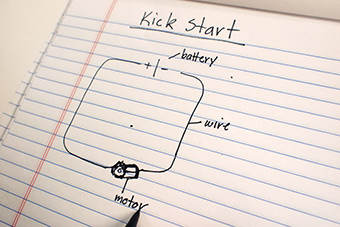 Kick Start
battery
+ -
wire
motor